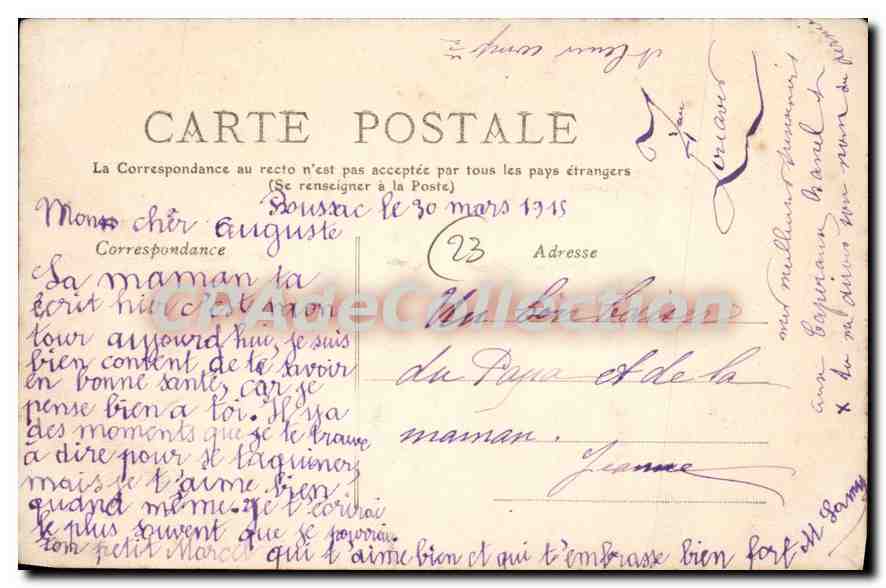 CARTE POSTALE
La Correspondance au recto n'est pas acceptée par tous les pays étrangers
(Se renseigner à la Poste)
Boussac le 30 mars 1915
Mon chèr Auguste
Correspondance
23
Adresse
La maman ta
écrit hier c'est mon
tour aujourd'hui, je suis
bien content de te savoir
en bonne santé, car je
pense bien a toi. Il y a
des moments que je te trouve
à dire pour se taquiner,
mais je t'aime bien
quand même. Je t'écrirai
le plus souvent que je pourrai.
Ton petit Marcel qui t'aime bien et qui t'embrasse bien fort
M Lamy
Un bon baiser
du Papa et de la
maman.
Jeanne
Zouaves
mes meilleurs souvenirs
aux Caporaux
tu me diras son nom
CPAdeCollection